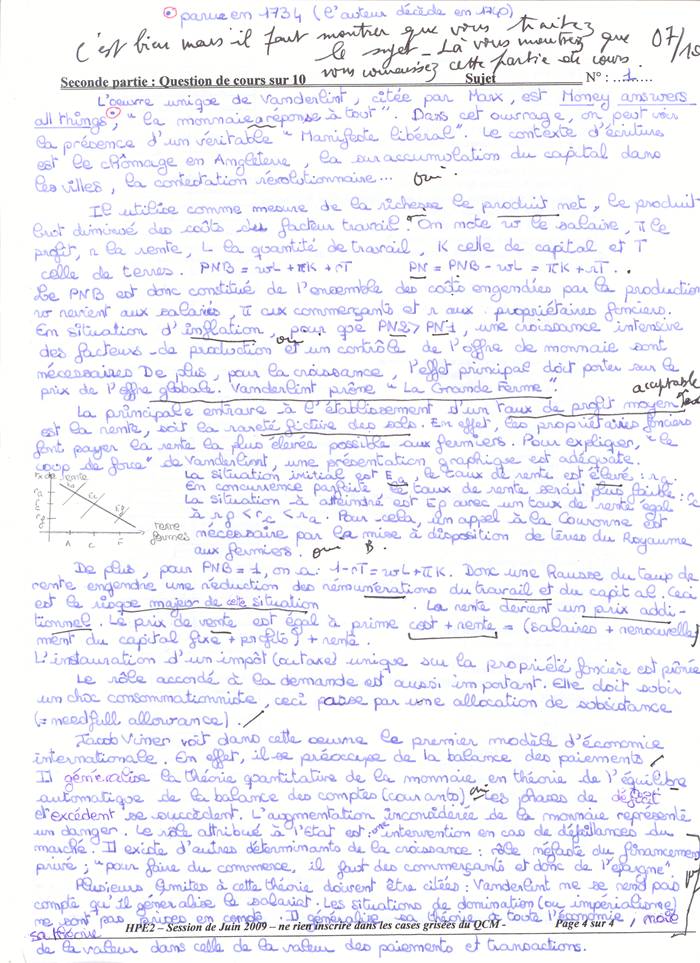 parue en 1734 (l'auteur décède en 1740)
C'est bien mais il faut montrer que vous traitez
le sujet - Là vous montrez que 07/10
vous connaissez cette partie de cours.
Seconde partie : Question de cours sur 10 Sujet N° : ..1......
L'oeuvre unique de Vanderlint, citée par Marx, est Money answers
all things, "la monnaie a réponse à tout". Dans cet ouvrage, on peut voir
la présence d'un véritable "Manifeste libéral". Le contexte d'écriture
est le chômage en Angleterre, la suraccumulation du capital dans
les villes, la contestation révolutionnaire... oui.
Il utilise comme mesure de la richesse le produit net, le produit
brut diminué des coûts du facteur travail. On note w le salaire, π le
profit, r la rente, L la quantité de travail, K celle de capital et T
celle de terres. PNB = wL + πK + rT PN = PNB - wL = πK + rT.
Le PNB est donc constitué de l'ensemble des coûts engendrés par la production
w revient aux salariés, π aux commerçants et r aux propriétaires fonciers.
En situation d'inflation, pour que PN2 > PN1, une croissance intensive
des facteurs de production et un contrôle de l'offre de monnaie sont
nécessaires De plus, pour la croissance, l'effet principal doit porter sur le
prix de l'offre globale. Vanderlint prône "La Grande Ferme". acceptable
La principale entrave à l'établissement d'un taux de profit moyen
est la rente, soit la rareté fictive des sols. En effet, les propriétaires fonciers
font payer la rente la plus élevée possible aux fermiers. Pour expliquer, "le
coup de force" de Vanderlint, une présentation graphique est adéquate.
La situation initiale est E, le taux de rente est élevé : ra.
En concurrence parfaite le taux de rente serait plus faible :
La situation à atteindre est Ep avec un taux de rente égal
à rp < rc < ra. Pour cela, un appel à la Couronne est
nécessaire par la mise à disposition de terres du Royaume
aux fermiers. oui B.
terre
fermes
A C F
De plus, pour PNB = 1, on a : 1-rT = wL + πK. Donc une hausse du taux de
rente engendre une réduction des rémunérations du travail et du capital. Ceci
est le risque majeur de cette situation. La rente devient un prix addi-
tionnel. Le prix de vente est égal à prime cost + rente = (salaires + renouvelle-
ment du capital fixe + profits) + rente.
L'instauration d'un impôt (ou taxe) unique sur la propriété foncière est prônée
Le rôle accordé à la demande est aussi important. Elle doit subir
un choc consommationniste, ceci passe par une allocation de subsistance
(= needfull allowance).
Jacob Viner voit dans cette oeuvre le premier modèle d'économie
internationale. En effet, il se préoccupe de la balance des paiements
Il généralise la théorie quantitative de la monnaie en théorie de l'équilibre
automatique de la balance des comptes (courants). oui Les phases de déficit
et excédent se succèdent. L'augmentation inconsidérée de la monnaie représente
un danger. Le rôle attribué à l'Etat est : une intervention en cas de défaillances du
marché. Il existe d'autres déterminants de la croissance : rôle néfaste du financement
privé ; "pour faire du commerce, il faut des commerçants et donc de l'épargne".
Plusieurs limites à cette théorie doivent être citées : Vanderlint ne se rend pas
compte qu'il généralise le salariat. Les situations de domination (ou impérialisme)
ne sont pas prises en compte. Il généralise sa théorie à toute l'économie, mais
HPE2 – Session de Juin 2009 – ne rien inscrire dans les cases grisées du QCM - Page 4 sur 4
sa théorie
de la valeur dans celle de la valeur des paiements et transactions.